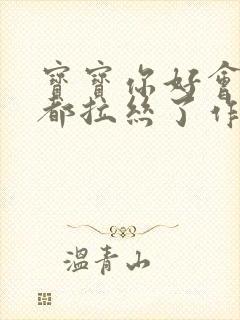 寶寶你好會
都拉絲了作
溫青山